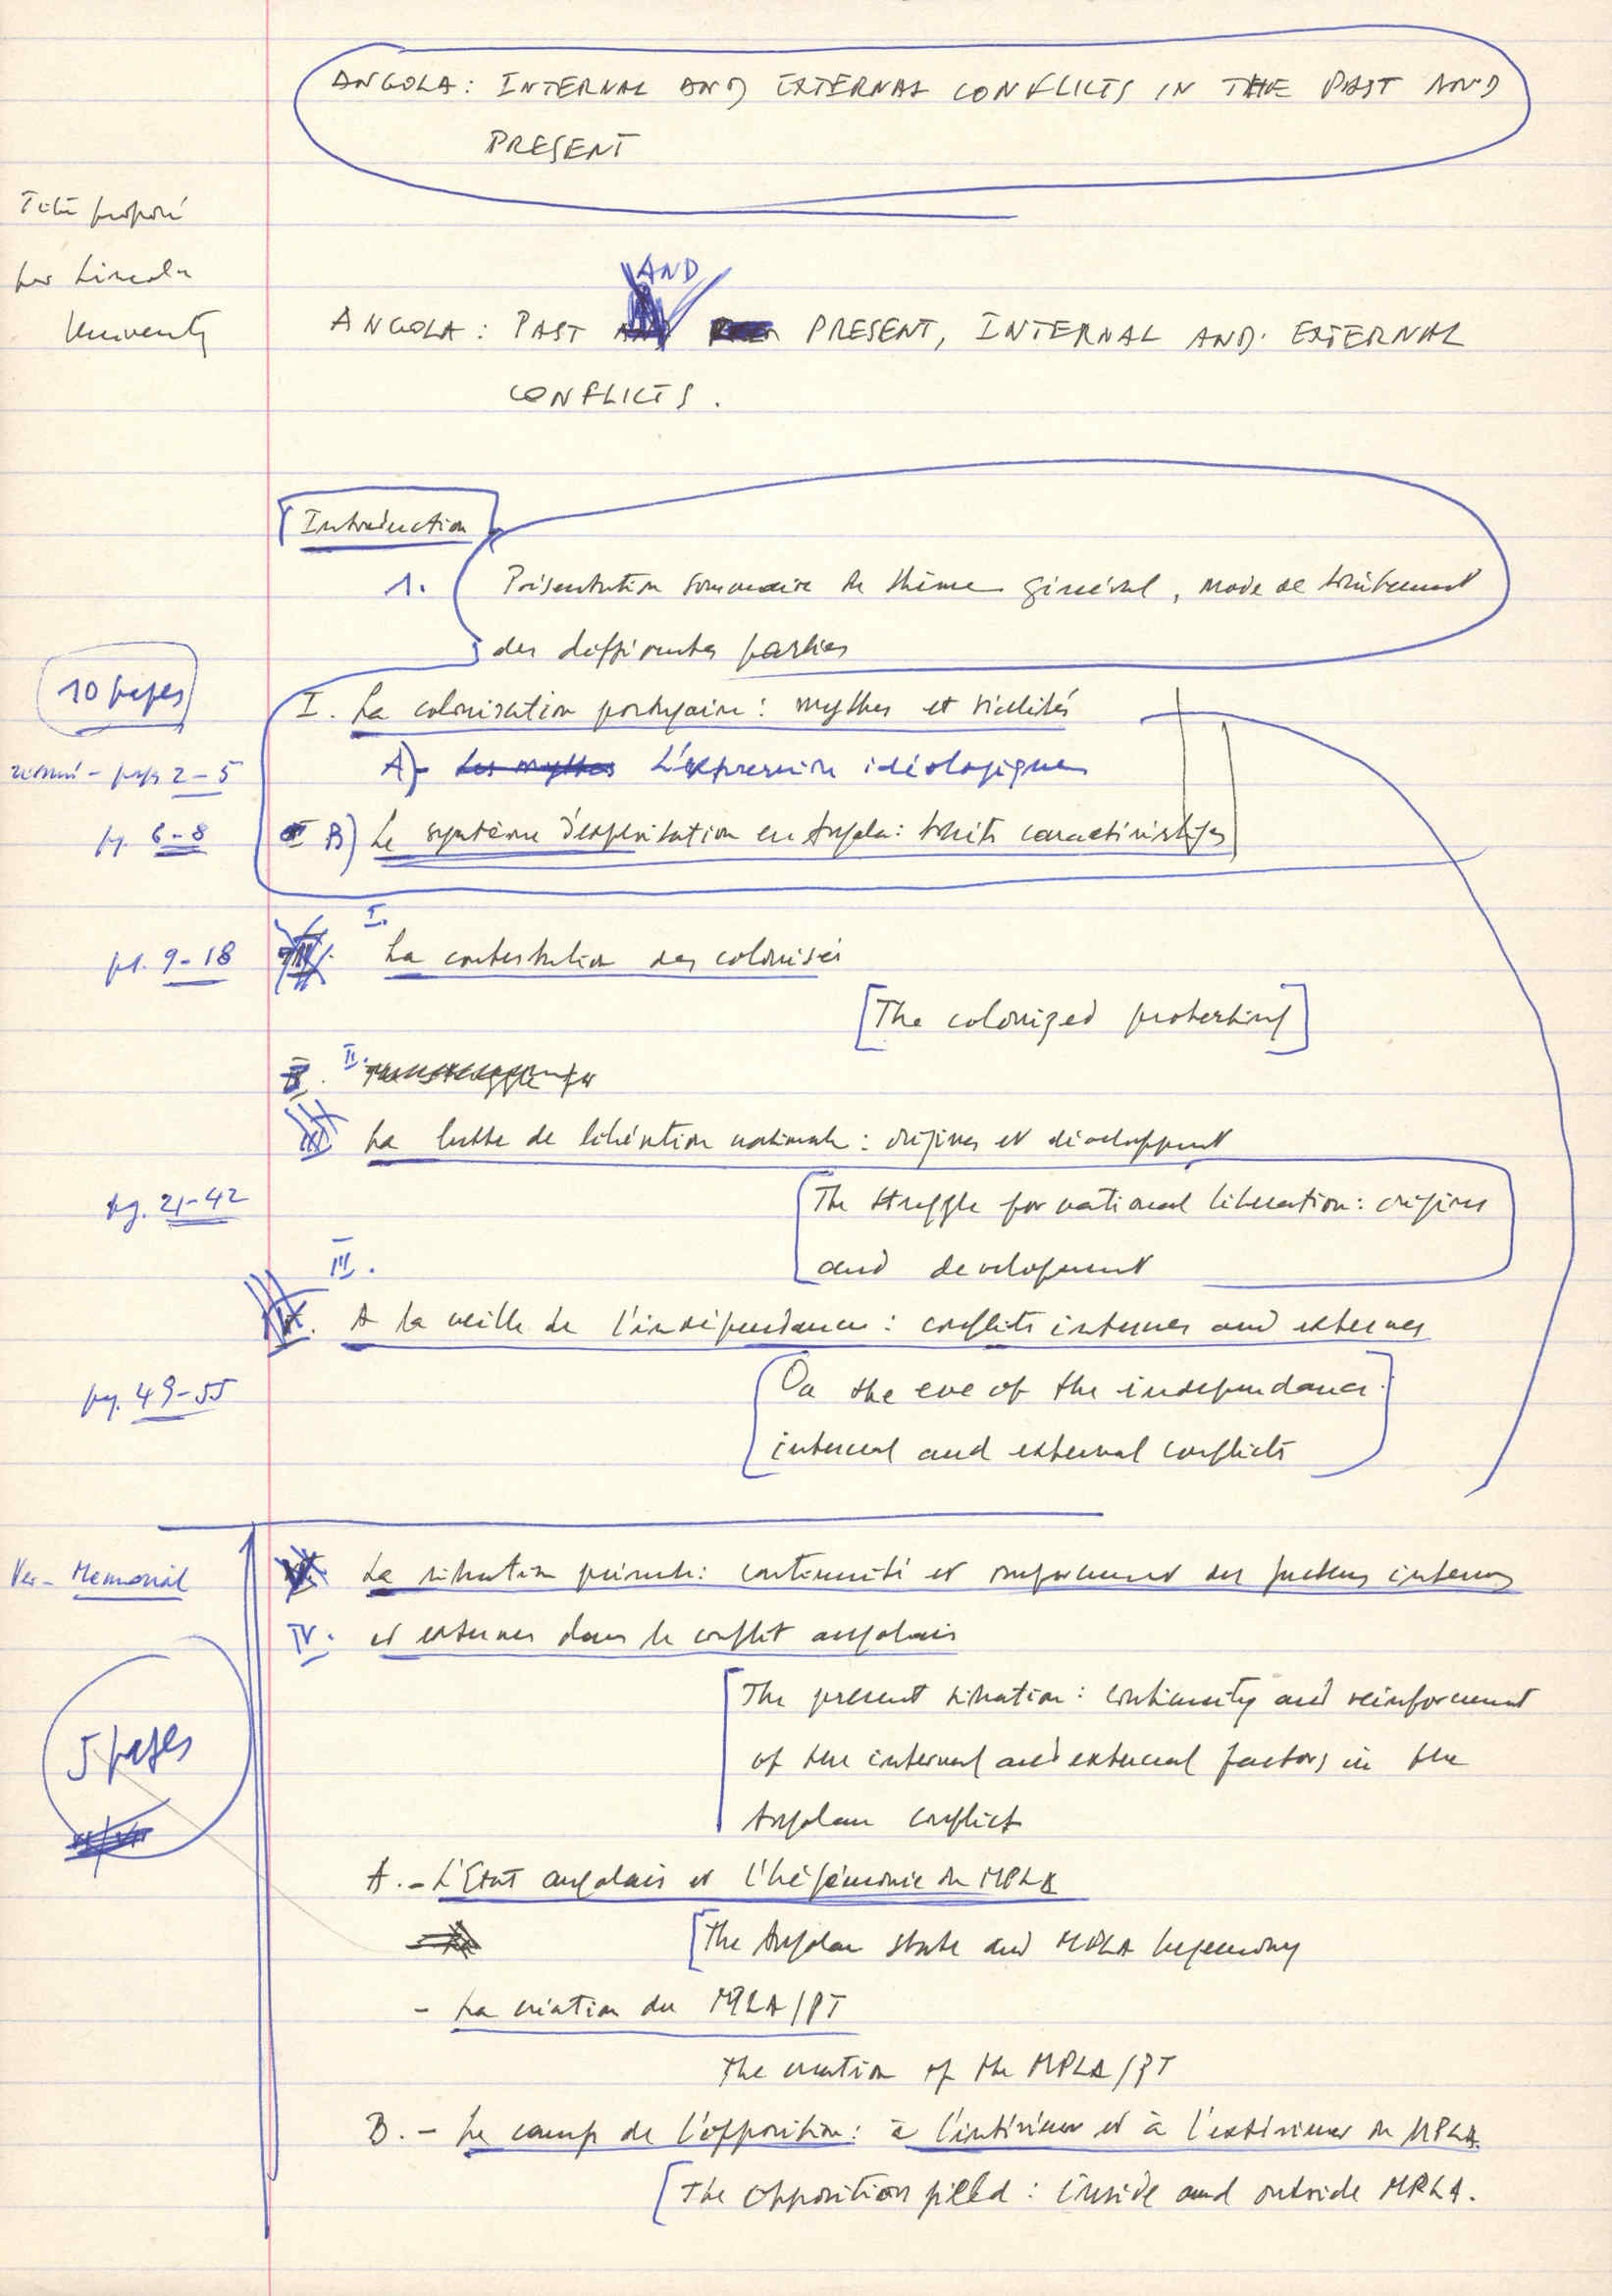 ANGOLA: INTERNAL AND EXTERNAL CONFLICTS IN THE PAST AND
PRESENT
Titre proposé
par Lincoln
University
AND
ANGOLA: PAST PRESENT, INTERNAL AND EXTERNAL
CONFLICTS.
Introduction
1. Présentation sommaire du thème général, mode de traitement
des différentes parties
10 pages
I. La colonisation portugaise: mythes et réalités
résumé - pags 2-5
A)- Les mythes L'expression idéologique
pg. 6-8
B) Le système d'exploitation en Angola: traits caractéristiques
I.
pg. 9-18
La contestation des colonisés
[The colonized protesting]
II.
La lutte de libération nationale: origines et développement
pg. 21-42
[The struggle for national liberation: origins
and development
III.
A la veille de l'indépendance: conflits internes and externes
pg. 49-55
[On the eve of the independance:
internal and external conflicts]
Ver- Memorial
La situation présente: continuité et renforcement des facteurs internes
IV. et externes dans le conflit angolais
[The present situation: continuity and reinforcement
of the internal and external factors in the
Angolan conflict
5 pages
A.- L'Etat angolais et l'hégémonie du MPLA
[The Angolan state and MPLA hegemony
- La création du MPLA/PT
The creation of the MPLA/PT
B.- Le camp de l'opposition: à l'intérieur et à l'extérieur du MPLA.
[The opposition field: inside and outside MPLA.